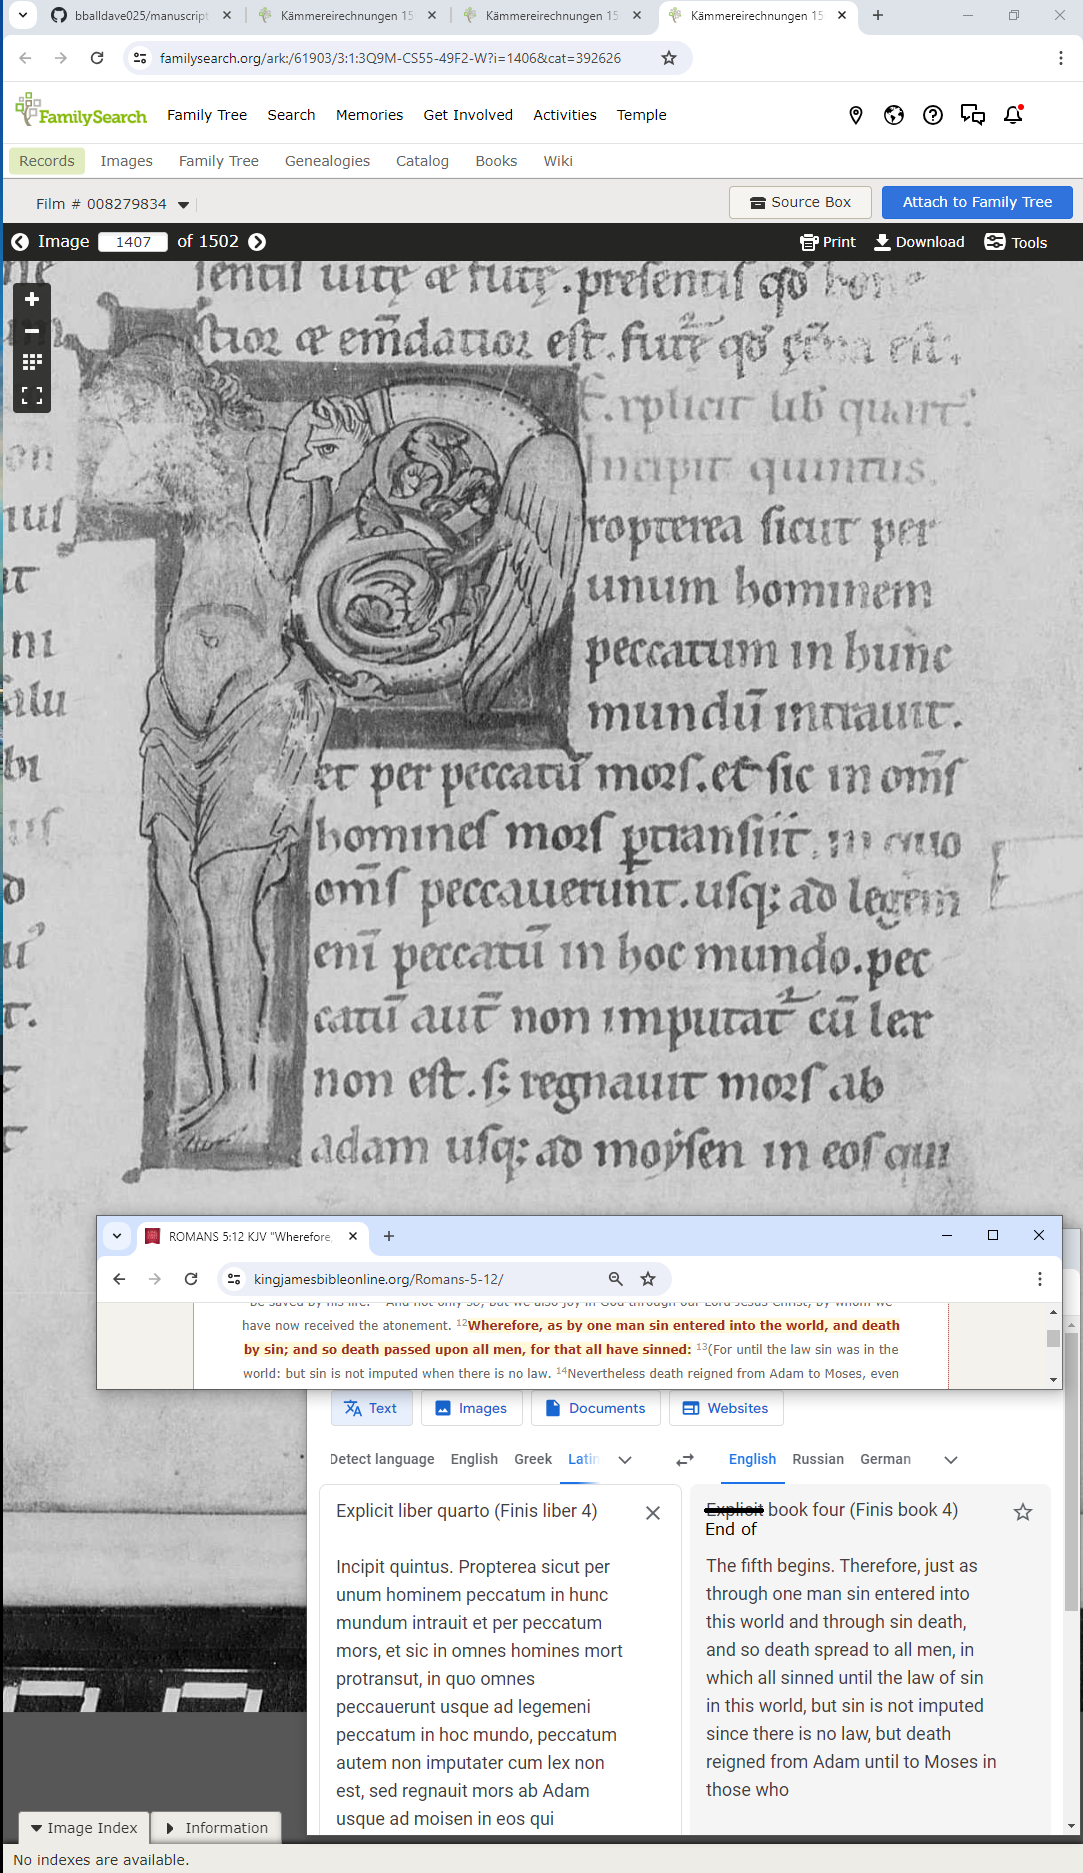 bballdave025/manuscript
Kämmereirechnungen 15
Kämmereirechnungen 15
Kämmereirechnungen 15
familysearch.org/ark:/61903/3:1:3Q9M-CS55-49F2-W?i=1406&cat=392626
FamilySearch
Family Tree Search Memories Get Involved Activities Temple
Records Images Family Tree Genealogies Catalog Books Wiki
Film # 008279834
Source Box
Attach to Family Tree
Image 1407 of 1502
Print Download Tools
sentis uitę & futę. presentis qd̄ bone
stior & em̄datior est. futę qd̄ est.
Explicit lib quart
Incipit quintus.
ropterea sicut per
unum hominem
peccatum in hunc
mundū intrauit.
et per peccatū mors. et sic in om̄s
homines mors ꝑtransiit. in quo
om̄s peccauerunt. usq; ad legem
eni peccatū in hoc mundo. pec
catū aut̄ non imputat̄ cū lex
non est. s; regnauit mors ab
adam usq; ad moẏsen in eos qui
on
uus
et
ni
alu
bi
us
o
ROMANS 5:12 KJV "Wherefore,
kingjamesbibleonline.org/Romans-5-12/
be saved by his life. And not only so, but we also joy in God through our Lord Jesus Christ, by whom we
have now received the atonement. 12Wherefore, as by one man sin entered into the world, and death
by sin; and so death passed upon all men, for that all have sinned: 13(For until the law sin was in the
world: but sin is not imputed when there is no law. 14Nevertheless death reigned from Adam to Moses, even
Text Images Documents Websites
Detect language English Greek Latin
English Russian German
Explicit liber quarto (Finis liber 4)
Incipit quintus. Propterea sicut per
unum hominem peccatum in hunc
mundum intrauit et per peccatum
mors, et sic in omnes homines mort
protransut, in quo omnes
peccauerunt usque ad legemeni
peccatum in hoc mundo, peccatum
autem non imputater cum lex non
est, sed regnauit mors ab Adam
usque ad moisen in eos qui
Explicit book four (Finis book 4)
End of
The fifth begins. Therefore, just as
through one man sin entered into
this world and through sin death,
and so death spread to all men, in
which all sinned until the law of sin
in this world, but sin is not imputed
since there is no law, but death
reigned from Adam until to Moses in
those who
Image Index
Information
No indexes are available.